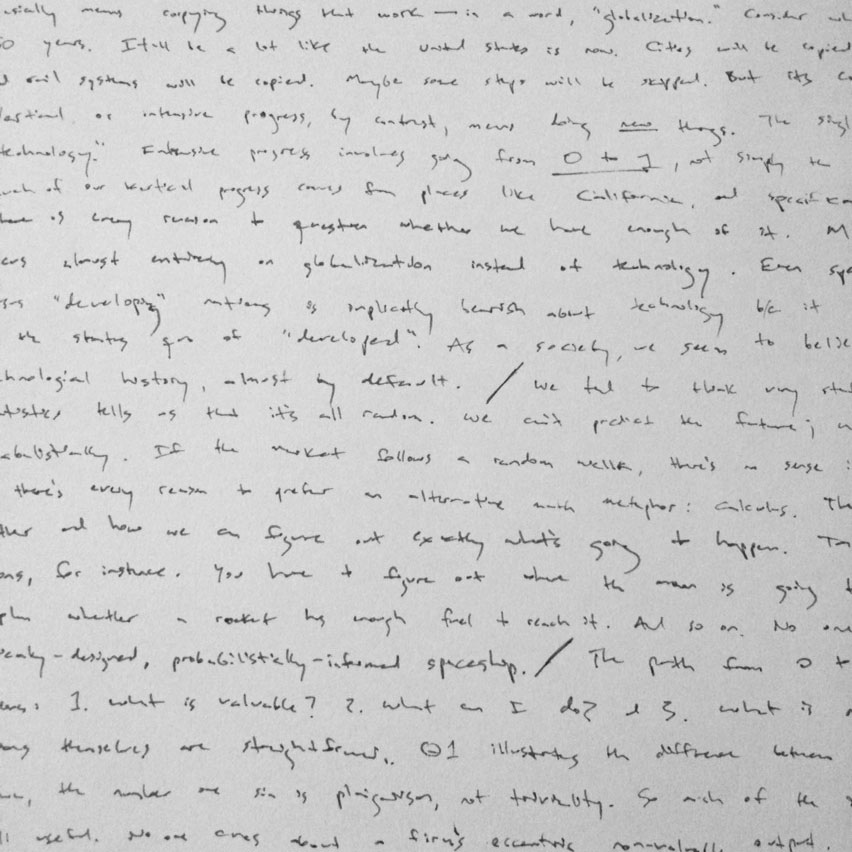 usually means copying things that work — in a word, "globalization." Consider wh
50 years. It'll be a lot like the United States is now. Cities will be copied
d rail systems will be copied. Maybe some steps will be skipped. But its co
or intensive progress, by contrast, means doing new things. The singl
technology." Intensive progress involves going from 0 to 1, not simply the
uch of our vertical progress comes from places like California, and specifica
here is every reason to question whether we have enough of it. M
cus almost entirely on globalization instead of technology. Even spe
"developing" nations is implicitly bearish about technology b/c it
the starting gun of "developed". As a society, we seem to belie
chnological history, almost by default. / We tend to think very sta
atistics tells us that it's all random. We can't predict the future; w
abilistically. If the market follows a random walk, there's no sense i
there's every reason to prefer an alternative math metaphor: calculus. The
ther and how we can figure out exactly what's going to happen.
ons, for instance. You have to figure out where the moon is going t
plan whether a rocket has enough fuel to reach it. And so on. No one
eaky-designed, probabilistically-informed spaceship. / The path from 0 to
1. what is valuable? 2. what can I do? & 3. what is
ong themselves are straightforward. Q1 illustrating the difference between
the number one sin is plaigarism, not triviality. So much of the
ll useful. No one cares about a firm's eccentric output.